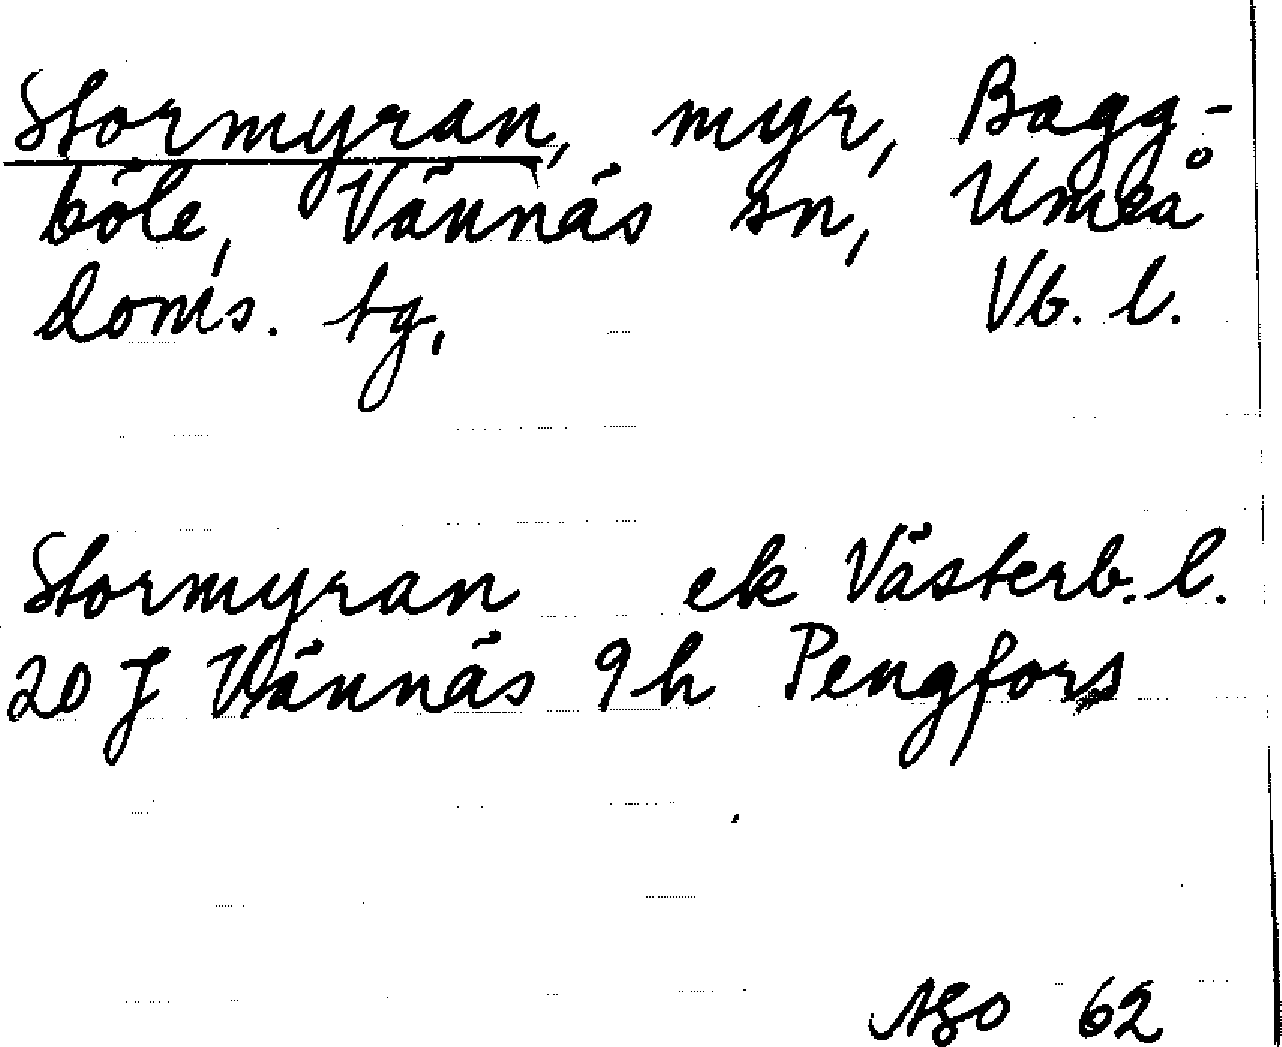 Stormyran, myr, Bagg-
böle, Vännäs sn, Umeå
doms. tg, Vb. l.
Stormyran ek Västerb. l.
20 J Vännäs 9h Pengfors
62